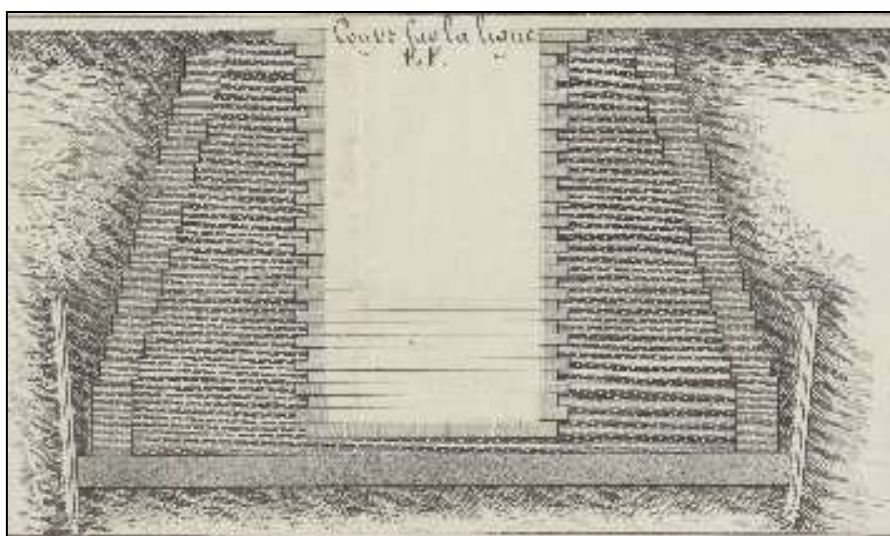 Coupe sur la ligne